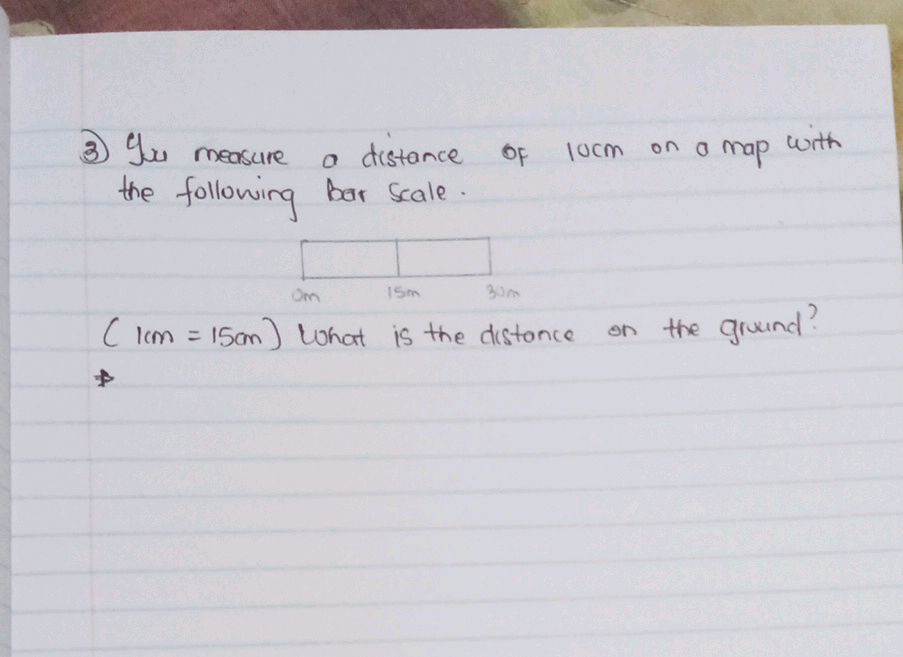 ③ You measure a distance of 10cm on a map with
the following bar scale.
0m 15m 30m
(1cm = 15cm) What is the distance on the ground?